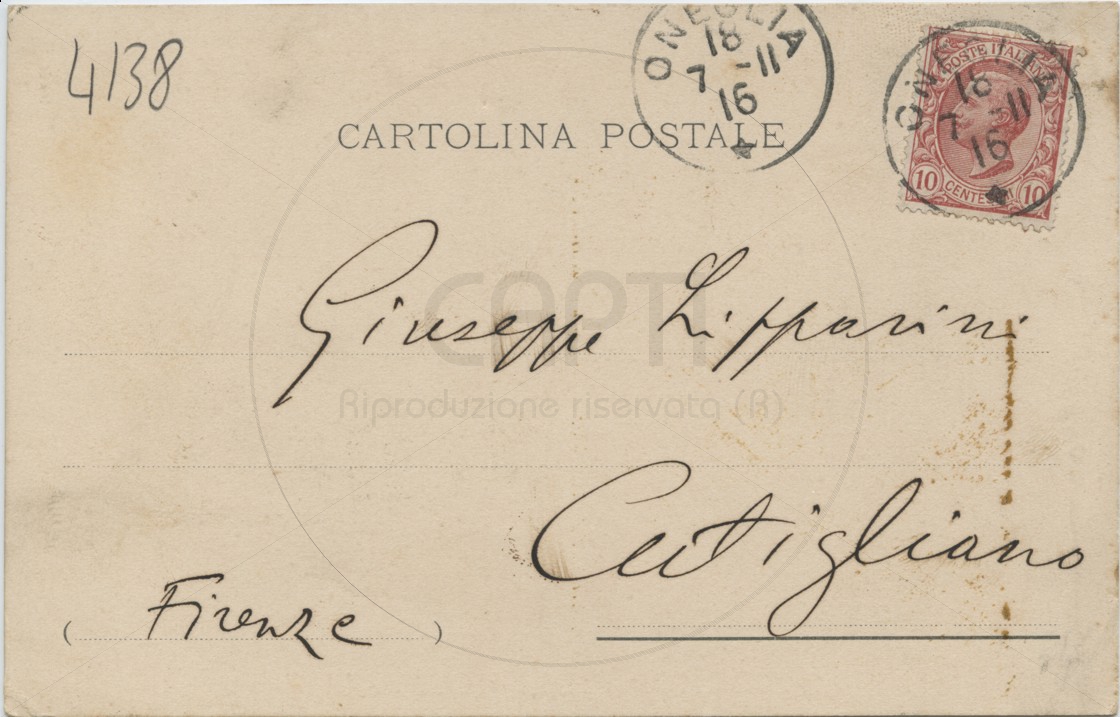 4138
ONEGLIA
18
7 -11
16
CARTOLINA POSTALE
POSTE ITALIANE
ONEGLIA
18
7 -11
16
10 CENTESIMI 10
Giuseppe Lipparini
CAPTI
Riproduzione riservata (R)
Cutigliano
( Firenze )